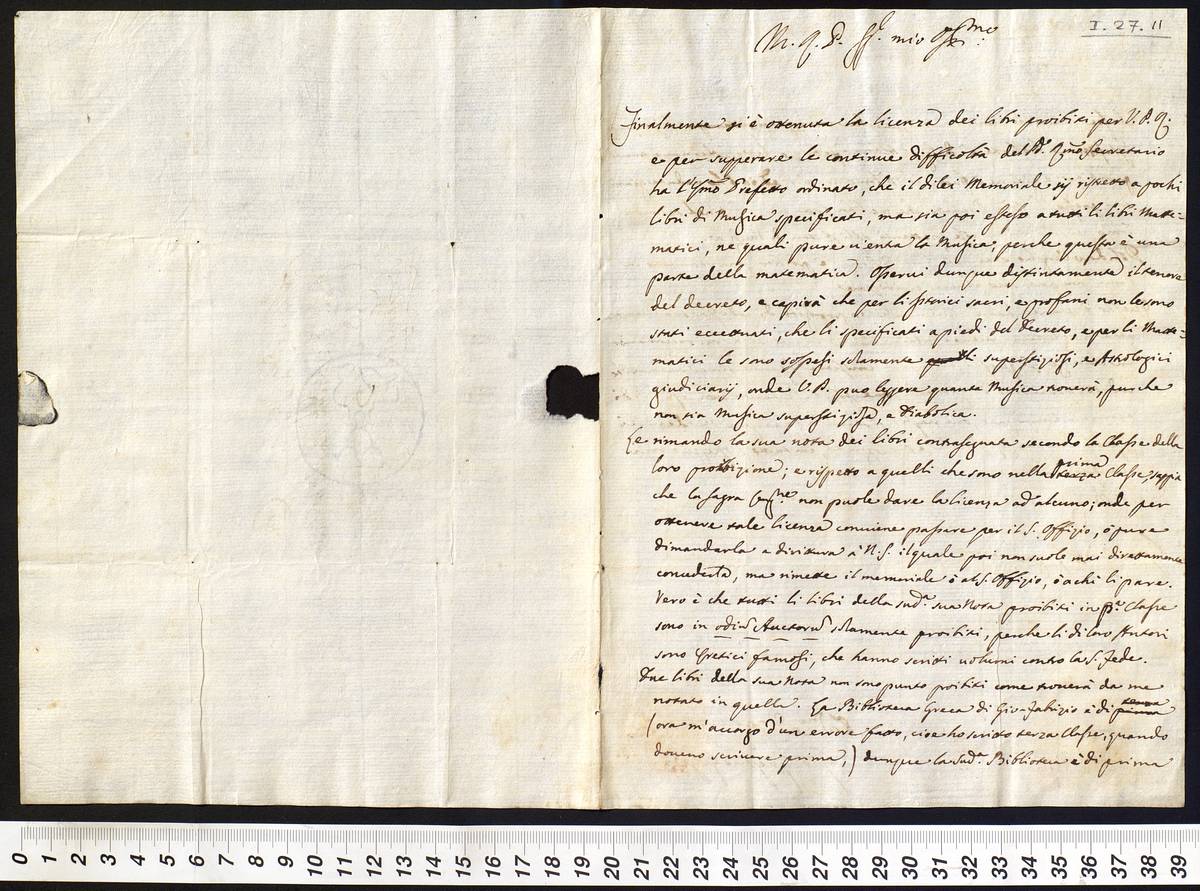 I. 27. 11
M. R. P. Sr. mio Ossmo
Finalmente si è ottenuta la licenza dei libri proibiti per V. P. R.
e per supperare le continue difficoltà del P. Rmo Secretario
ha l'Emo Prefetto ordinato, che il di lei Memoriale sij ristretto a pochi
libri di Musica specificati, ma sia poi esteso a tutti li libri Matte=
matici, ne quali pure u'entra la Musica, perche questa è una
parte della matematica. Osserui dunque distintamente il tenore
del decreto, e capirà che per li storici sacri, e profani non le sono
stati eccettuati, che li specificati a piedi del Decreto, e per li Matte=
matici le sono sospesi solamente li superstiziosi, e Astrologici
giudiciarij, onde V. P. puo leggere quanta Musica trouerà, purche
non sia Musica superstiziosa, e Diabolica.
Le rimando la sua nota dei libri contrasegnata secondo la Classe della
loro proibizione; e rispetto a quelli che sono nella terza prima Classe, sappia
che la sagra Congne non puole dare la licenza ad alcuno; onde per
ottenere tale licenza conuiene passare per il S. Offizio, ò pure
dimandarla a dirittura à N. S. il quale poi non suole mai direttamente
concederla, ma rimette il memoriale ò al S. Offizio, ò a chi li pare.
Vero è che tutti li libri della sudª sua Nota proibiti in pª Classe
sono in odiũ Auctorũ solamente proibiti, perche li di loro Autori
sono Eretici famosi, che hanno scritti uolumi contro la S. Fede.
Due libri della sua Nota non sono punto proibiti come trouerà da me
notato in quella. La Biblioteca Greca di Gio: Fabrizio è di prima terza
(ora m'accorgo d'un errore fatto, cioe ho scritto terza Classe, quando
doueuo scriuere prima,) dunque la sudª Biblioteca è di prima
0 1 2 3 4 5 6 7 8 9 10 11 12 13 14 15 16 17 18 19 20 21 22 23 24 25 26 27 28 29 30 31 32 33 34 35 36 37 38 39